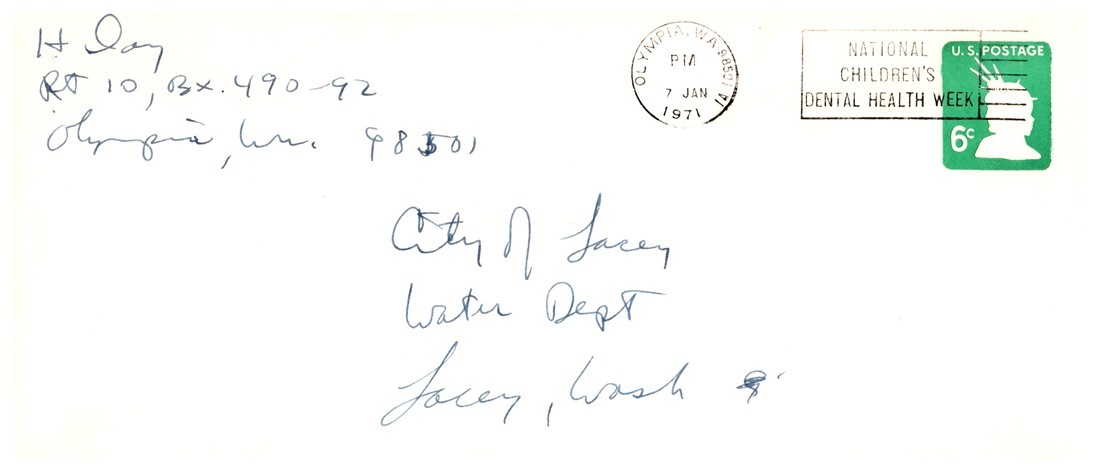 H Day
Rt 10, Bx. 490-92
Olympia, Wn. 98501
OLYMPIA, WA 98501
PM
7 JAN
1971
NATIONAL
CHILDREN'S
DENTAL HEALTH WEEK
U.S. POSTAGE
6c
City of Lacey
Water Dept
Lacey, Wash